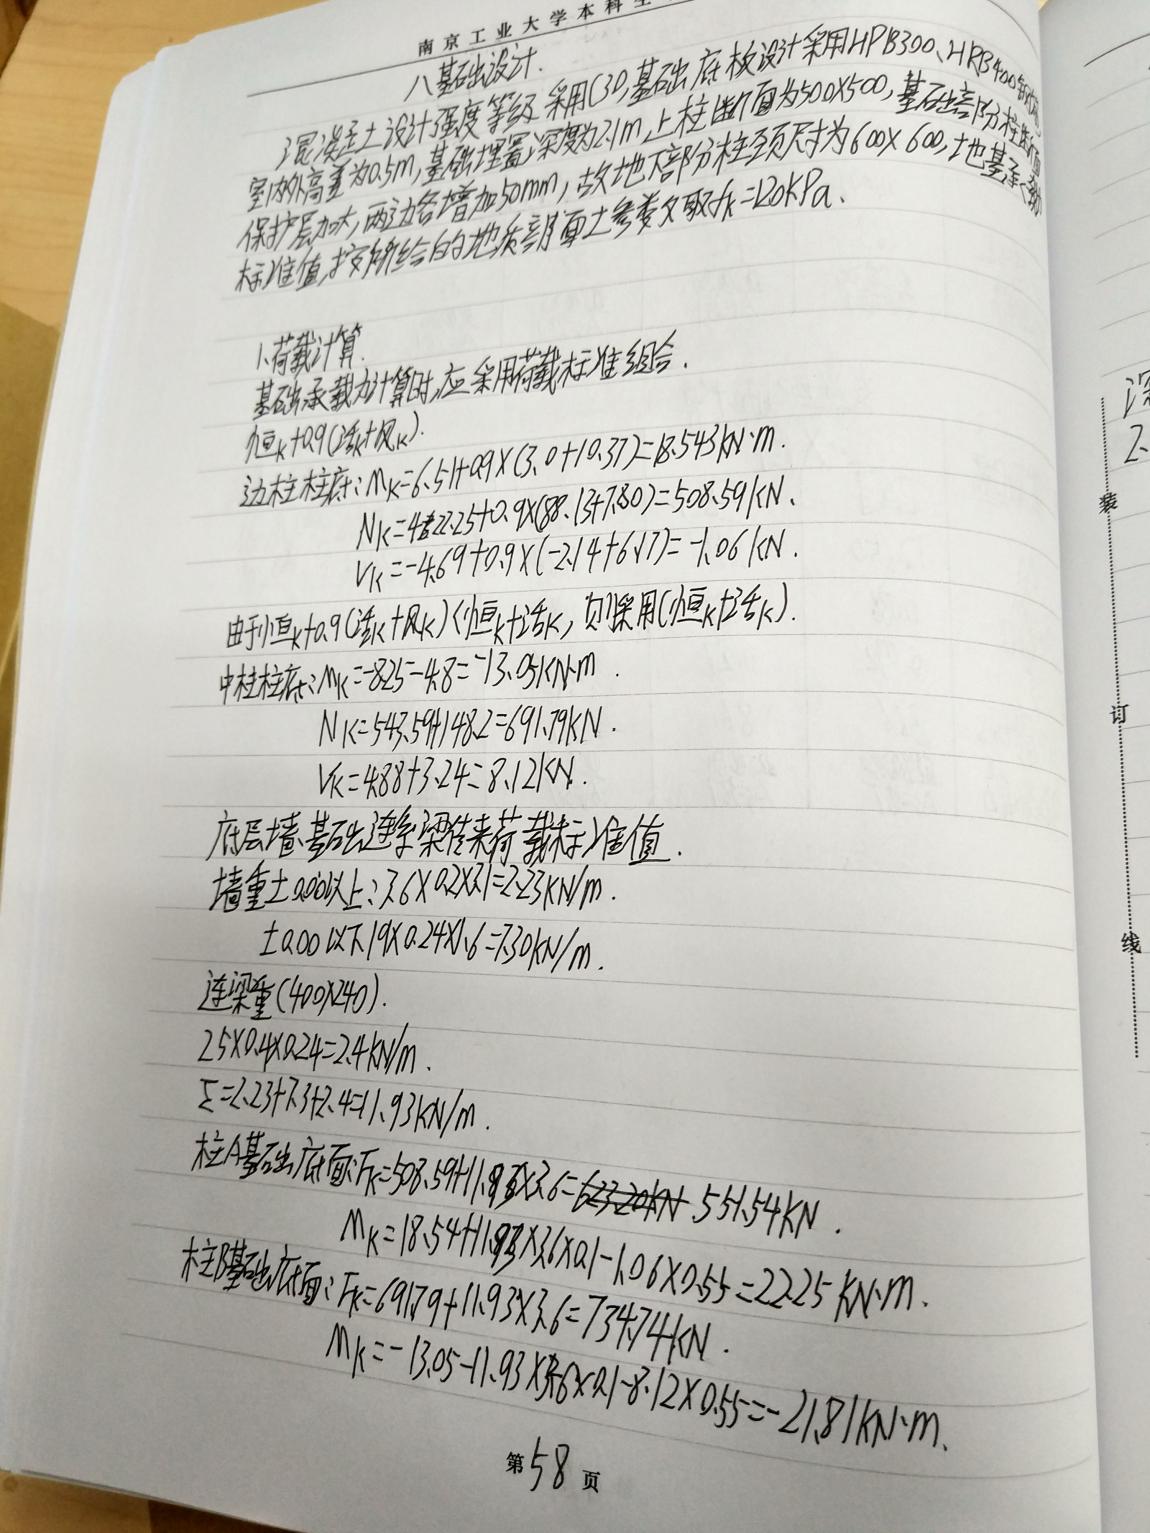 南京工业大学本科生
八基础设计.
混凝土设计强度等级采用C30,基础底板设计采用HPB300、HRB400钢筋,
室内外高差为0.5m,基础埋置深度为2.1m,上柱断面为500X500,基础部分柱断面
保护层加大,两边各增加50mm,故地下部分柱颈尺寸为600X600,地基承载力
标准值,按所给的地质剖面土参数取fk=120KPa.
1、荷载计算.
基础承载力计算时,应采用荷载标准组合.
恒K+0.9(活K+风K).
边柱柱底:MK=6.51+0.9X(3.0+10.37)=18.543KN·m.
NK=422.25+0.9X(88.13+7.80)=508.59KN.
VK=-4.69+0.9X(-2.14+6.17)=-1.06KN.
由于恒K+0.9(活K+风K)<恒K+活K,则采用(恒K+活K).
中柱柱底:MK=-8.25-4.8=-13.05KN·m.
NK=543.59+148.2=691.79KN.
VK=4.88+3.24=8.12KN.
底层墙、基础连系梁传来荷载标准值.
墙重±0.00以上:3.6X0.2X3.1=2.23KN/m.
±0.00以下19X0.24X1.6=7.30KN/m.
连梁重(400X240).
25X0.4X0.24=2.4KN/m.
Σ=2.23+7.3+2.4=11.93KN/m.
柱A基础底面:FK=508.59+11.93X3.6=623.20KN 551.54KN.
MK=18.54+11.93X3.6X0.1-1.06X0.55=22.25KN·m.
柱B基础底面:FK=691.79+11.93X3.6=734.74KN.
MK=-13.05-11.93X3.6X0.1-8.12X0.55=-21.81KN·m.
第58页
深
2.
装
订
线